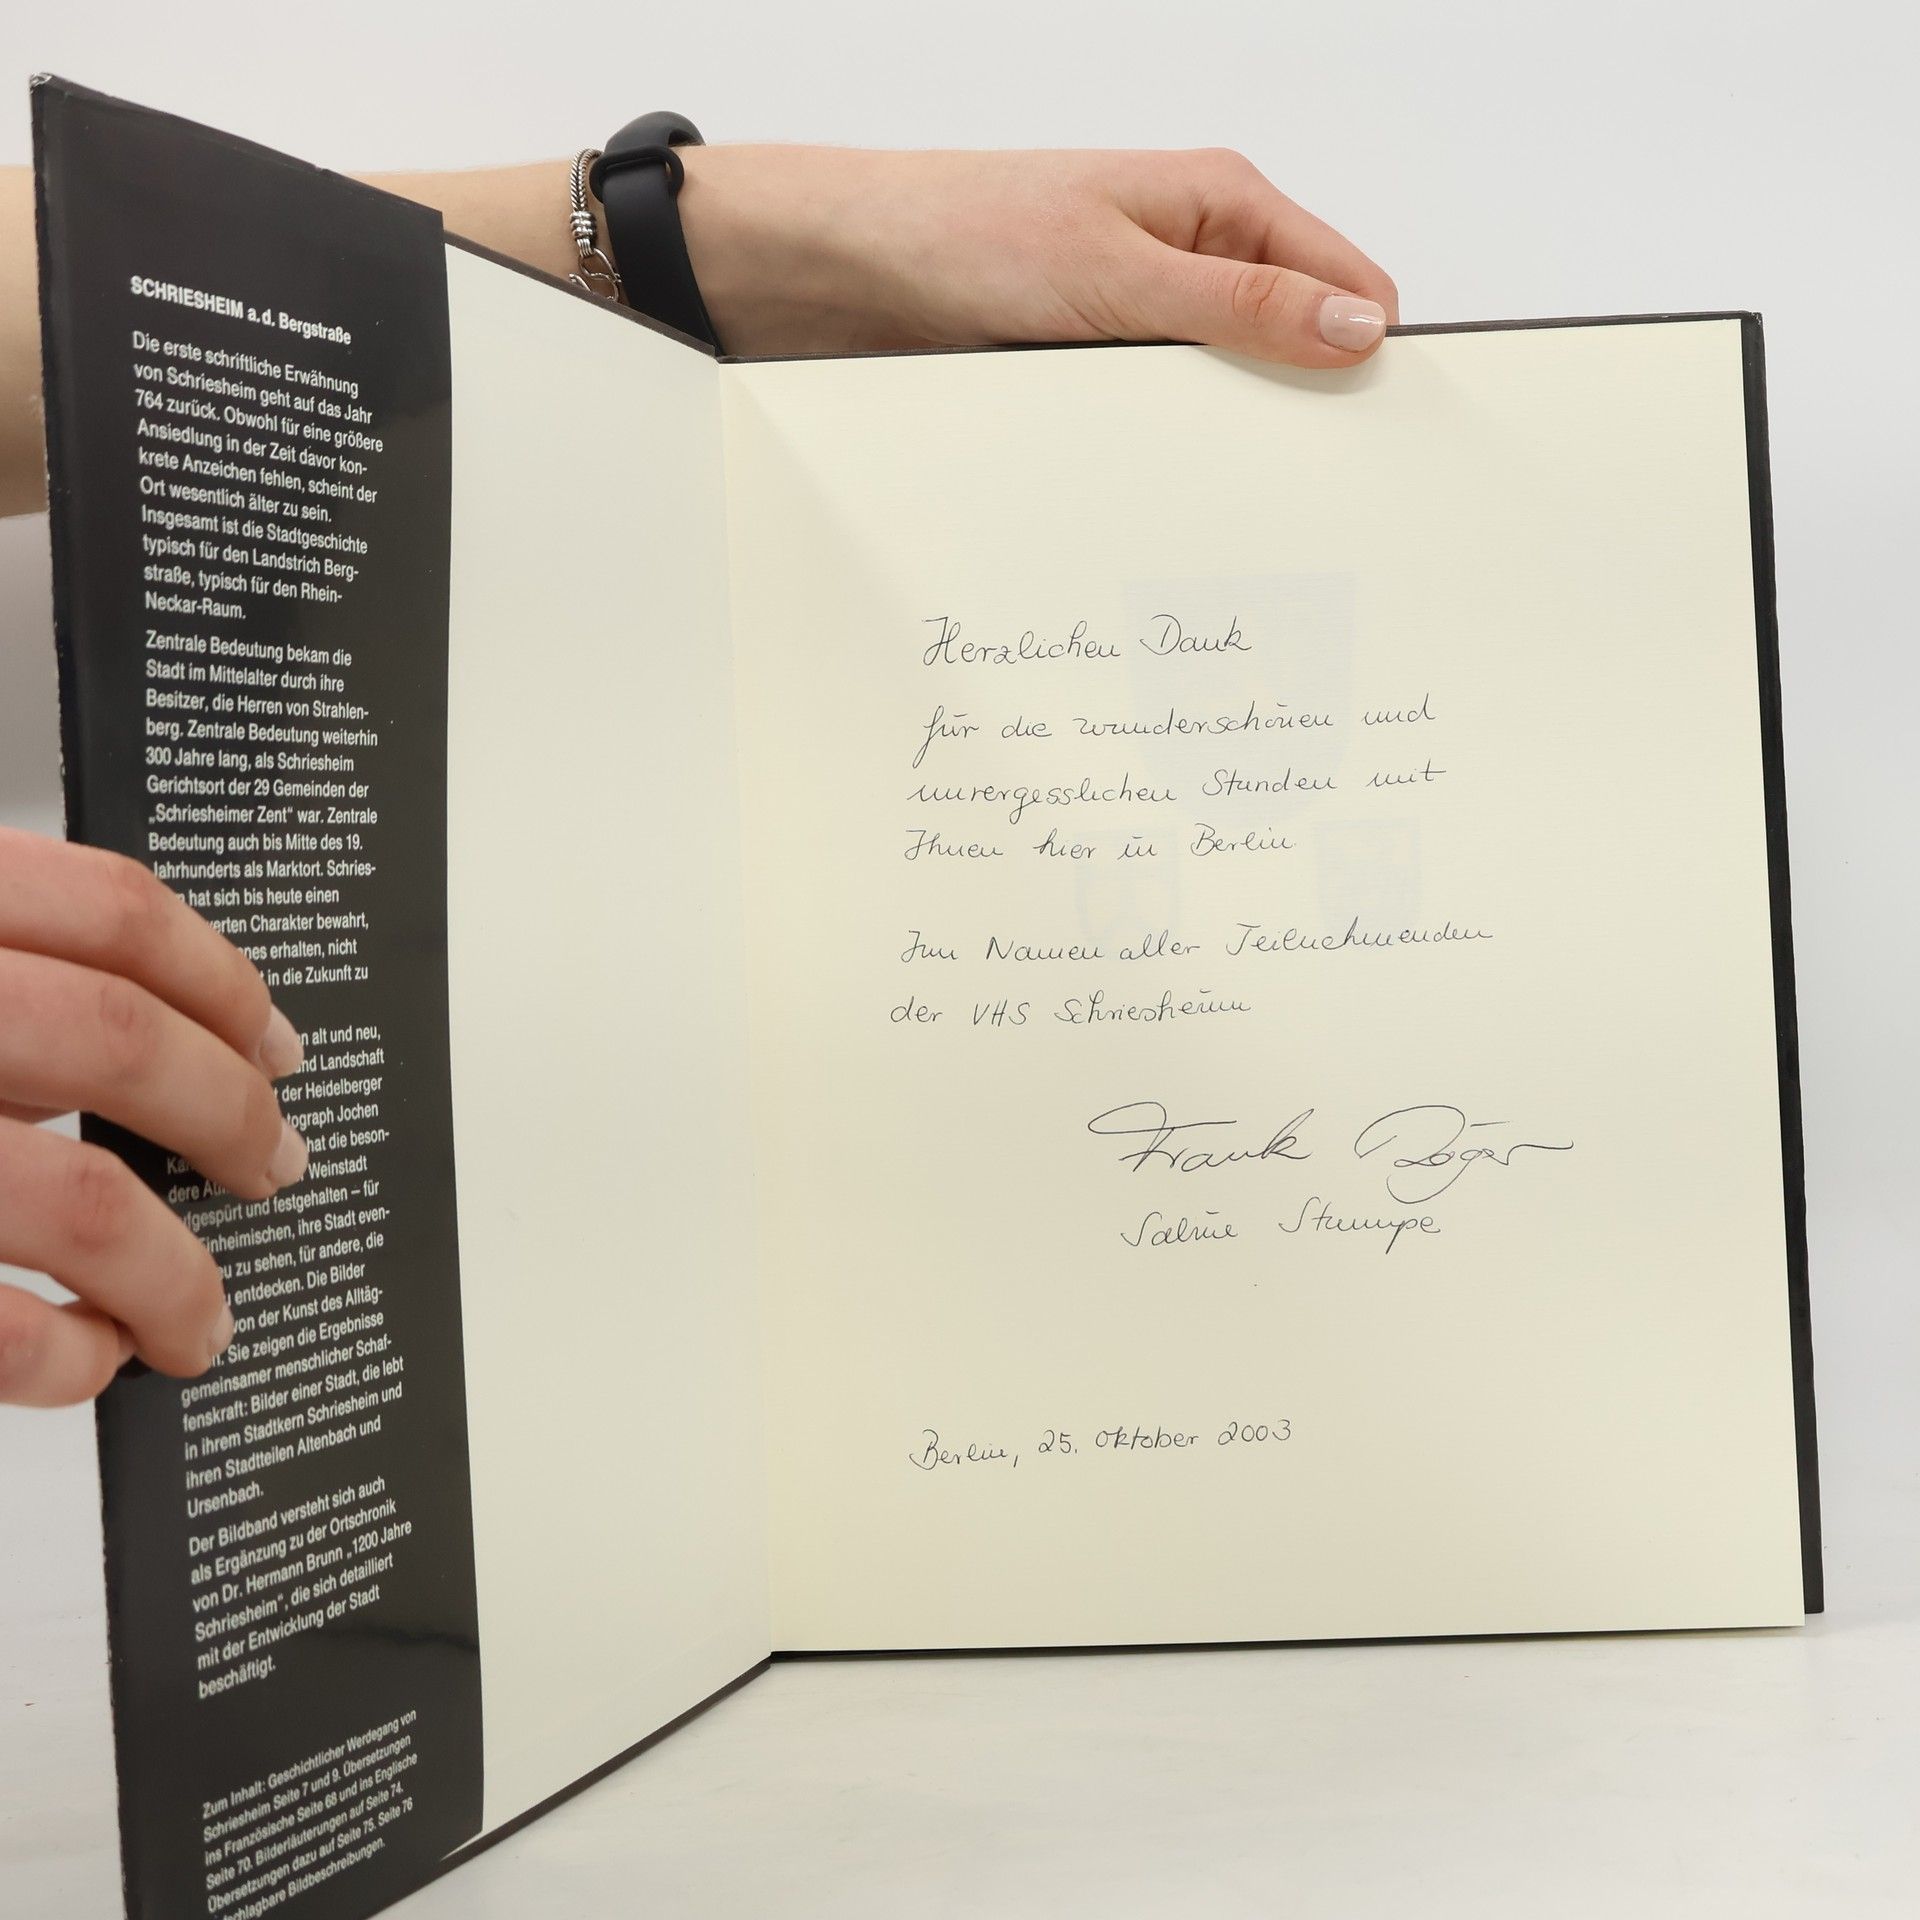 SCHRIESHEIM a.d. Bergstraße
Die erste schriftliche Erwähnung
von Schriesheim geht auf das Jahr
764 zurück. Obwohl für eine größere
Ansiedlung in der Zeit davor kon-
krete Anzeichen fehlen, scheint der
Ort wesentlich älter zu sein.
Insgesamt ist die Stadtgeschichte
typisch für den Landstrich Berg-
straße, typisch für den Rhein-
Neckar-Raum.
Zentrale Bedeutung bekam die
Stadt im Mittelalter durch ihre
Besitzer, die Herren von Strahlen-
berg. Zentrale Bedeutung weiterhin
300 Jahre lang, als Schriesheim
Gerichtsort der 29 Gemeinden der
„Schriesheimer Zent“ war. Zentrale
Bedeutung auch bis Mitte des 19.
Jahrhunderts als Marktort. Schries-
hat sich bis heute einen
Charakter bewahrt,
erhalten, nicht
in die Zukunft zu
alt und neu,
Landschaft
der Heidelberger
Jochen
hat die beson-
Weinstadt
dere
und festgehalten – für
ihre Stadt even-
zu sehen, für andere, die
entdecken. Die Bilder
von der Kunst des Alltäg-
Sie zeigen die Ergebnisse
gemeinsamer menschlicher Schaf-
fenskraft: Bilder einer Stadt, die lebt
in ihrem Stadtkern Schriesheim und
ihren Stadtteilen Altenbach und
Ursenbach.
Der Bildband versteht sich auch
als Ergänzung zu der Ortschronik
von Dr. Hermann Brunn „1200 Jahre
Schriesheim“, die sich detailliert
mit der Entwicklung der Stadt
beschäftigt.
Zum Inhalt: Geschichtlicher Werdegang von
Schriesheim Seite 7 und 9. Übersetzungen
ins Französische Seite 68 und ins Englische
Seite 70. Bilderläuterungen auf Seite 74.
Übersetzungen dazu auf Seite 75. Seite 76
Bildbeschreibungen.
Herzlichen Dank
für die wunderschönen und
unvergesslichen Stunden mit
Ihnen hier in Berlin.
Im Namen aller Teilnehmenden
der VHS Schriesheim
Frank Röger
Sabine Stumpe
Berlin, 25. Oktober 2003